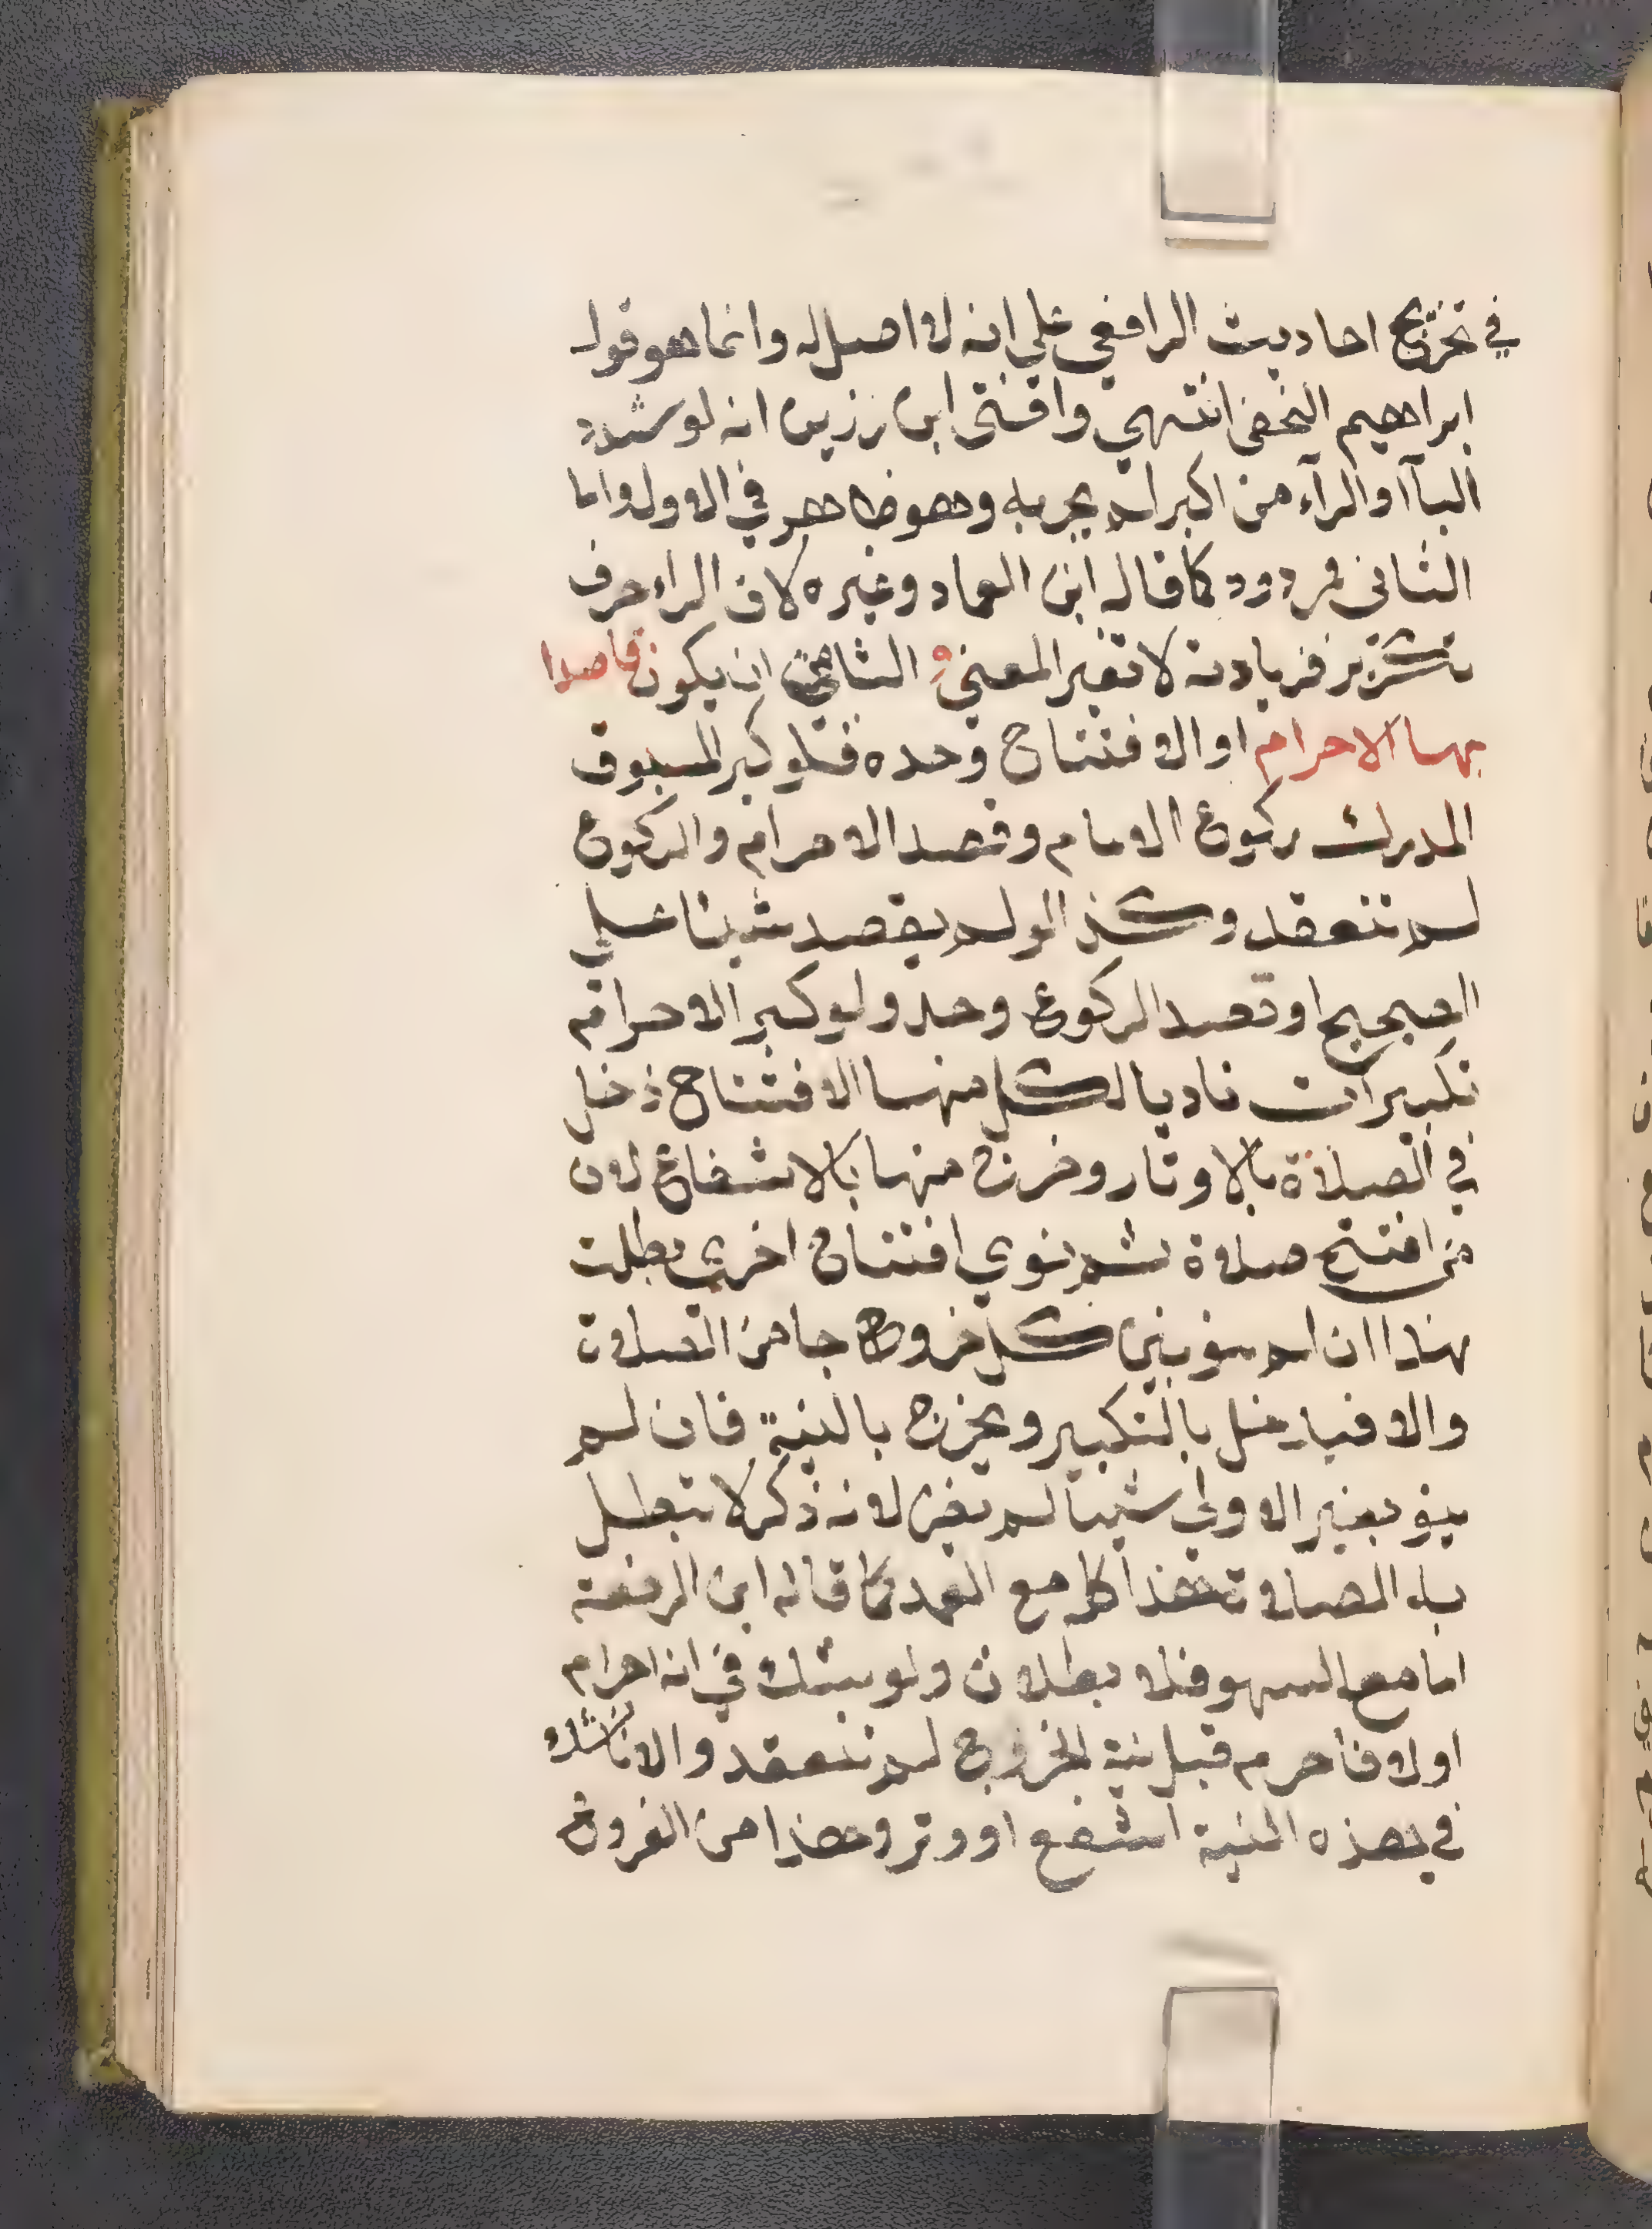 في تخريج احاديث الرافعي علي انه لا اصل له وانما هو قول
ابراهيم النخعي انتهي وافتى ابن رزين انه لو شدد
البآ او الرآء من اكبر لم يجزيه وهو ظاهر في الاول واما
الثاني فمردود كما قاله ابن العماد وغيره لان الراء حرف
تكرير فزيادته لا تغير المعني الثامن ان يكون قاصدا
بها الاحرام او الافتتاح وحده فلو كبر المسبوق
المدرك ركوع الامام وقصد الاحرام والركوع
لم تنعقد وكذا لو لم يقصد شيئا علي
الصحيح او قصد الركوع وحده ولو كبر للاحرام
تكبيرات ناويا لكل منها الافتتاح دخل
في الصلاة بالاوتار وخرج منها بالاشفاع لان
من افتتح صلاة ثم نوي افتتاح اخري بطلت
هذا ان لم ينو بين كل خروجا من الصلاة
والا فيدخل بالتكبير ويخرج بالنية فان لم
ينو بغير الاولي شيئا لم يضر لانه ذكر لا تبطل
به الصلاة هذا كله مع العمد كما قاله ابن الرفعة
اما مع السهو فلا بطلان ولو شك في انه احرم
اولا فأحرم قبل نية الخروج لم تنعقد والانا شك
في هذه النية اشفع او وتر وهذا من الفروع